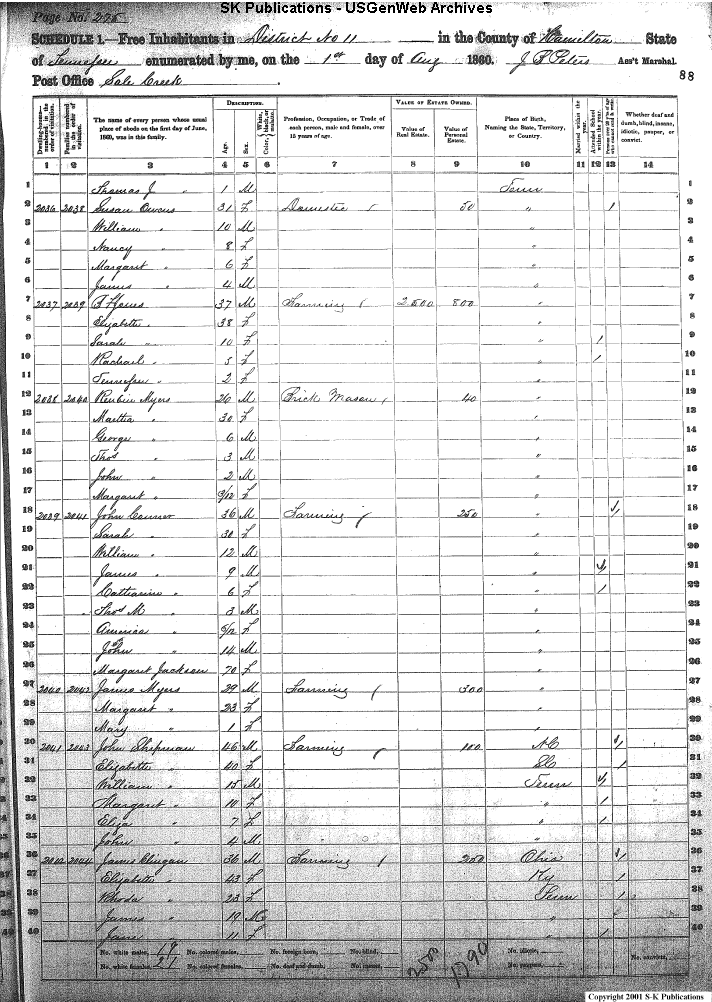 SK Publications - USGenWeb Archives
Page No. 225
SCHEDULE 1.—Free Inhabitants in District No 11 in the County of Hamilton State
of Tennessee enumerated by me, on the 1st day of Aug 1860. Ass't Marshal
88
Post Office Sale Creek
Dwelling-houses—numbered in the order of visitation.
Families numbered in the order of visitation.
The name of every person whose usual place of abode on the first day of June, 1860, was in this family.
DESCRIPTION.
Age.
Sex.
Color, White, black, or mulatto.
Profession, Occupation, or Trade of each person, male and female, over 15 years of age.
VALUE OF ESTATE OWNED.
Value of Real Estate.
Value of Personal Estate.
Place of Birth, Naming the State, Territory, or Country.
Married within the year.
Attended School within the year.
Whether deaf and dumb, blind, insane, idiotic, pauper, or convict.
1 2 3 4 5 6 7 8 9 10 11 12 13 14
1 Thomas J " 1 M Tenn 1
2 2036 2038 Susan Owens 31 F Domestic 50 " / 2
3 William " 10 M " 3
4 Nancy " 8 F " 4
5 Margaret " 6 F " 5
6 James " 4 M " 6
7 2037 2039 37 M Farming 2500 800 " 7
8 Elizabeth " 38 F " 8
9 Sarah " 10 F " / 9
10 Rachael " 3 F " / 10
11 Tennessee " 2 F " 11
12 2038 2040 Reubin Myers 26 M Brick Mason 40 " 12
13 Martha " 30 F " 13
14 George " 6 M " 14
15 Thos " 3 M " 15
16 John " 2 M " 16
17 Margaret " F " 17
18 2039 2041 John Conner 36 M Farming 250 " / 18
19 Sarah " 30 F " 19
20 William " 12 M " 20
21 James " 9 M " / 21
22 Catharine " 6 F " / 22
23 Thos M " 3 M " 23
24 America " F " 24
25 John " 14 M " 25
26 Margaret Jackson 70 F " 26
27 2040 2042 James Myers 29 M Farming 300 " 27
28 Margaret " 23 F " 28
29 Mary " 1 F " 29
30 2041 2043 John Shipman 46 M Farming 100 NC / 30
31 Elizabeth " 40 F SC / 31
32 William " 15 M Tenn / 32
33 Margaret " 10 F " / 33
34 Eliza " 7 F " / 34
35 John " 4 M " 35
36 2044 James 36 M Farming 200 Ohio / 36
37 Elizabeth " 43 F Ky / 37
38 Rhoda " 23 F Tenn / 38
39 James " 19 M " 39
40 Jane " 11 F " / 40
No. white males, 19 No. colored males, No. foreign born, No. blind, 2500 1790 No. idiotic, No. convicts,
No. white females, 21 No. colored females, No. deaf and dumb, No. insane, No. paupers,
Copyright 2001 S-K Publications